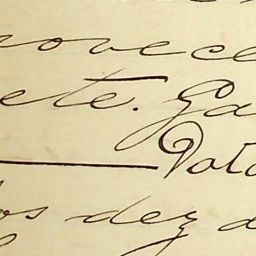 novece
ete. Ga
Data
os dez d